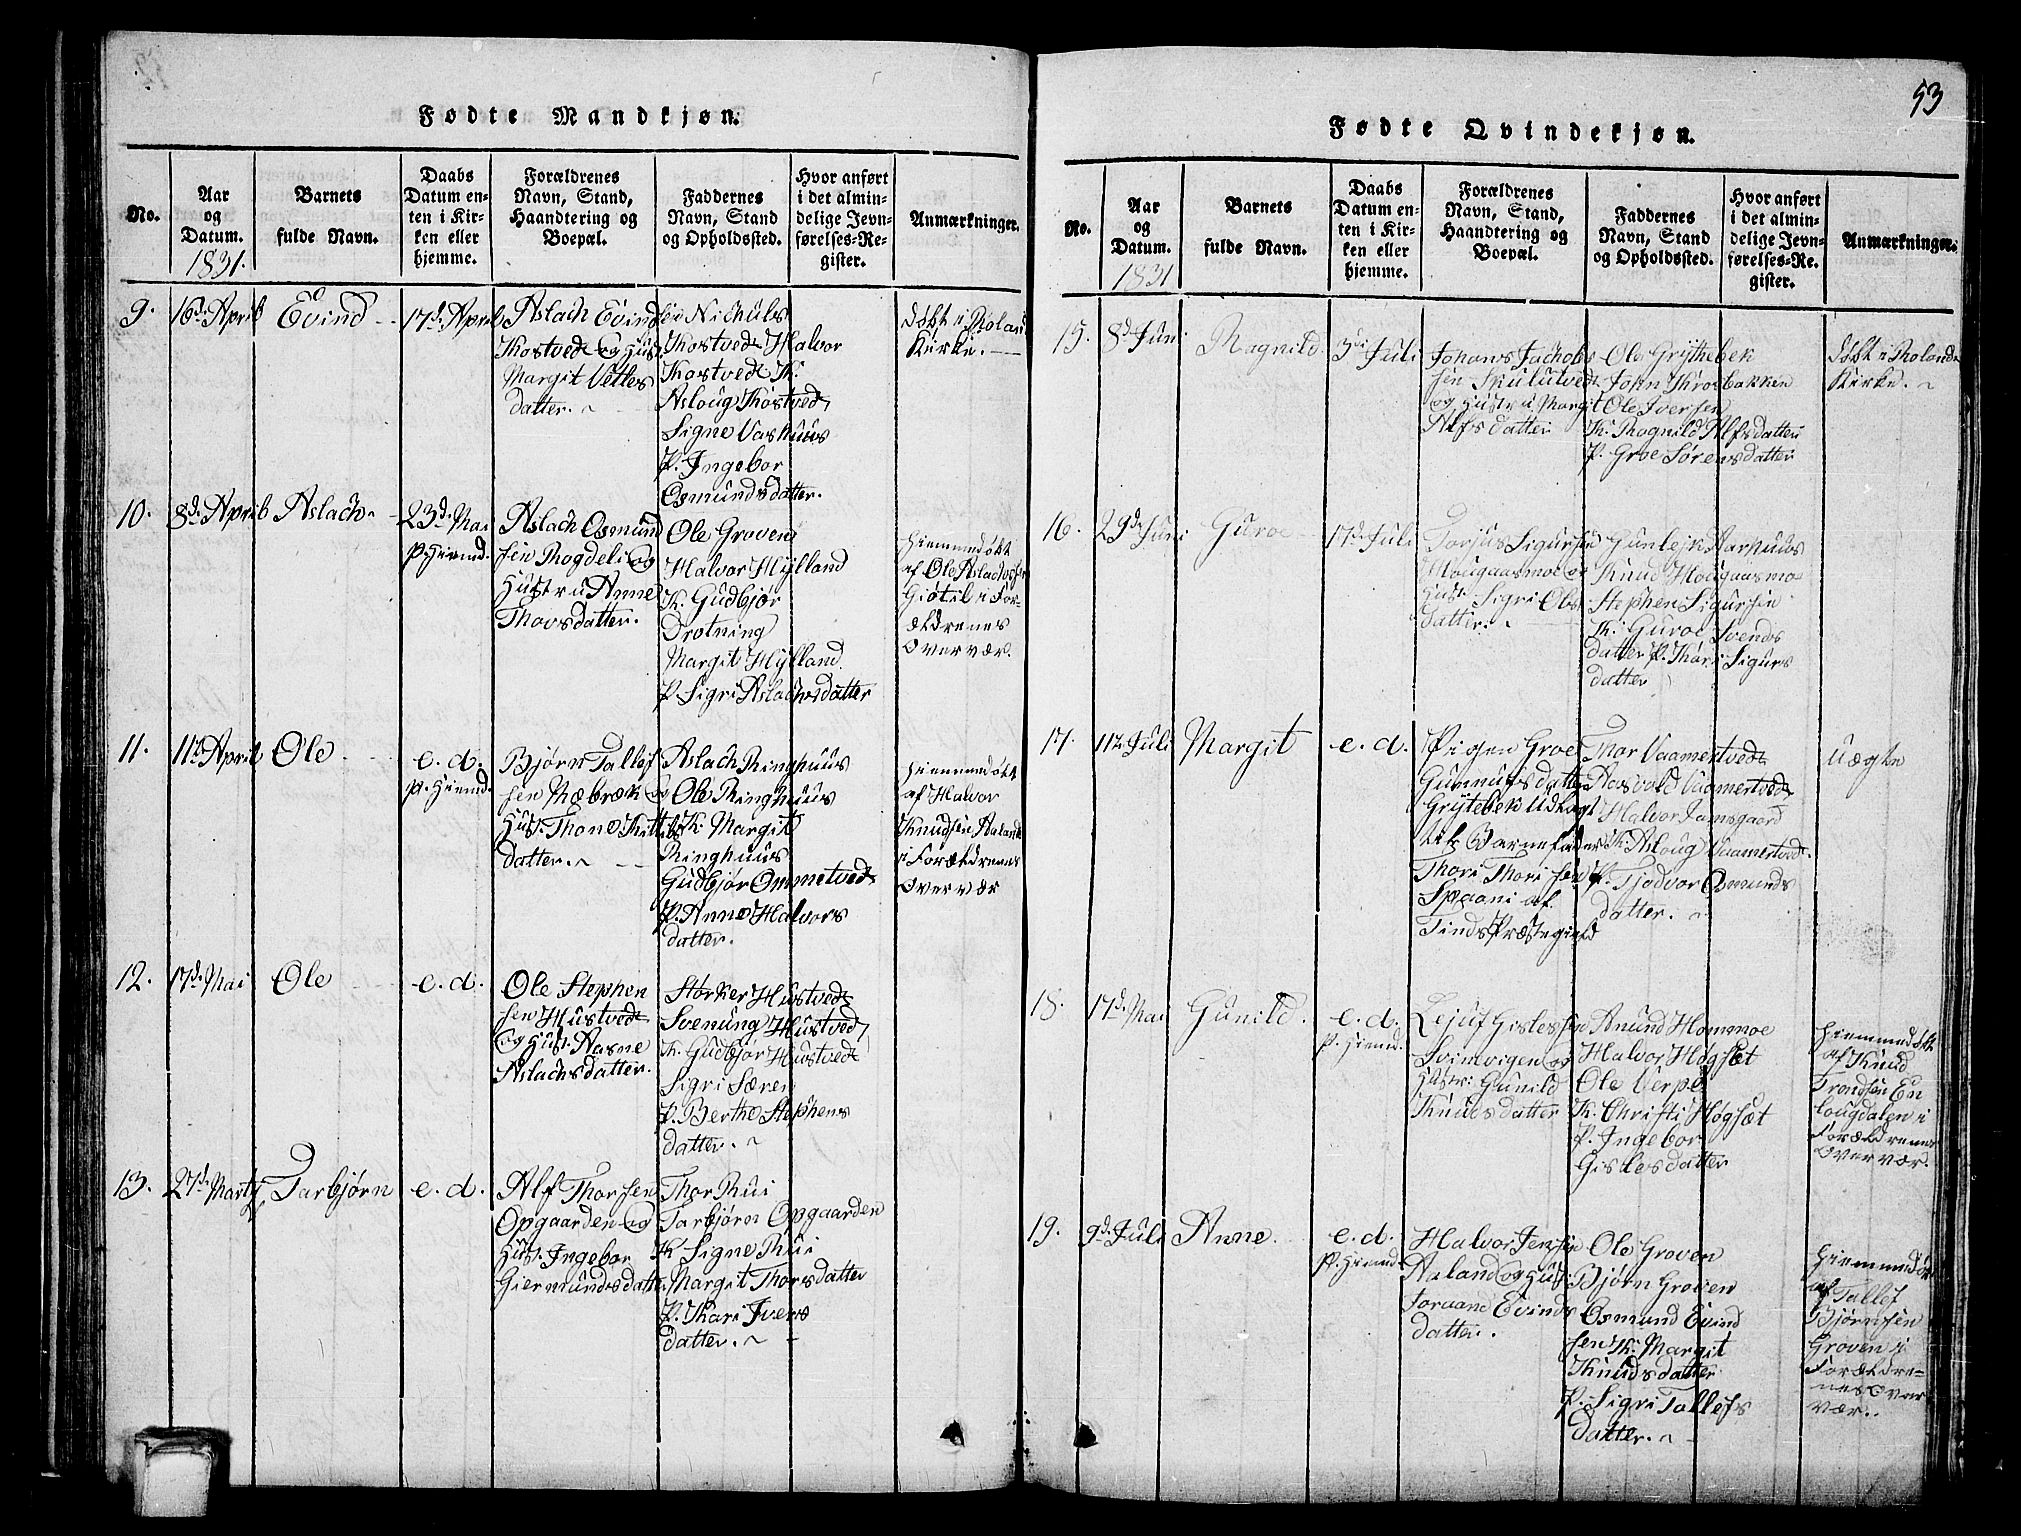 53
Fødte Mandkjøn.
No.
Aar
og
Datum.
1831.
Barnets
fulde Navn.
Daabs
Datum en-
ten i Kir-
ken eller
hjemme.
Forældrenes
Navn, Stand,
Haandtering og
Boepæl.
Faddernes
Navn, Stand
og Opholdssted.
Hvor anført
i det almin-
delige Jevn-
førelses-Re-
gister.
Anmærkninger.
9.
16d. April
Evind
17d. April
Aslach Evind
Tostvedt og Hust.
Margit Vetles
datter.
sen Nichuls
Tostvedt Halvor
Tostvedt K.
Asloug Tostvedt
Signe Vashuus
P. Ingebor
Osmundsdatter.
Døbt i Roland
Kirke.
10.
8d. April
Aslach
23d. Mai
P. Hiemd.
Aslach Osmund
sen Rogdeli og
Hustru Anne
Thovsdatter.
Ole Groven
Halvor Hylland
K. Gudbjør
Drotning
Margit Hylland
P. Sigri Aslachsdatter
Hiemmedøbt
af Ole Aslachsen
Giøtil i For-
ældrenes
Overvær.
11.
11te April
Ole
e. d.
P. Hiemd.
Bjørn Tallef
sen Mæbræk og
Hust. Thone Kittils
datter.
Aslach Ringhuus
Ole Ringhuus
K. Margit
Ringhuus
Gudbjør Ommetvedt
P. Anne Halvors
datter.
Hiemmedøbt
af Halvor
Knudsen Aaland
i Forældrenes
Overvær
12.
17d. Mai
Ole
e. d.
Ole Stephen
sen Hustvedt
og Hust. Aasne
Aslachsdatter.
Storker Hustvedt
Svenung Hustvedt
K. Gudbjør Hustvedt
Sigri Særen
P. Berthe Stephens
datter.
13.
27d. Marty
Tarbjørn
e. d.
Alf Thorsen
Opgaarden og
Hust. Ingebor
Giermundsdatter
Thor Rui
Tarbjørn Opgaarden
K. Signe Rui
Margit Thorsdatter
P. Kari Ivers
datter.
Fødte Qvindekjøn.
No.
Aar
og
Datum.
1831
Barnets
fulde Navn.
Daabs
Datum en-
ten i Kir-
ken eller
hjemme.
Forældrenes
Navn, Stand,
Haandtering og
Boepæl.
Faddernes
Navn, Stand
og Opholdssted.
Hvor anført
i det almin-
delige Jevn-
førelses-Re-
gister.
Anmærkninger.
15.
8d. Juni
Ragnild.
3di Juli
Johans Jachob
sen Skulutvedt
og Hustru Margit
Alfsdatter
Ole Grythebek
John Throebakken
Ole Iversen
K. Rognild Alfsdatter
P. Groe Sørensdatter
Døbt i Rolands
Kirke.
16.
29d. Juni
Guroe
17d. Juli
Torjus Sigursen
Hougaasmoe og
Hust. Sigri Ols
datter.
Gunlejk Aarhuus
Knud Hougaasmo
Stephen Sigursen
K. Guroe Svends
datter P. Thori Sigurs
datter
17.
11te Juli
Margit
e. d.
Pigen Groe
Gunnufsdatter
Grytebek Udlagt
til Barnefader
Thori Thorisen
Spaani af
Tinds Præstegield
Thor Vaamertvedt
Rosvold Vaamertvedt
Halvor Jamsgaard
K. Asloug Vaamertvedt
P. Tjodvor Osmunds
datter.
Uægte
18.
17d. Mai
Gunild.
e. d.
P. Hiemd.
Lejuf Gislesen
Svinvigen og
Hustr. Gunild
Knudsdatter
Anund Hommoe
Halvor Høgsæt
Ole Verpe
K. Christi Høgsæt
P. Ingebor
Gislesdatter
Hiemmedøbt
af Knud
Trondsen En
lougdalen i
Forældrenes
Overvær.
19.
9d. Juli
Anne.
e. d.
P. Hiemd.
Halvor Jensen
Aaland og Hust.
Joraand Evinds
datter.
Ole Groven
Bjørn Groven
Osmund Evind
sen K. Margit
Knudsdatter
P. Sigri Tallefs
datter.
Hiemmedøbt
af Tallef
Bjørnsen
Groven i
Forældre-
nes Over
vær.